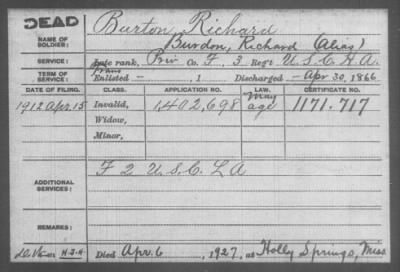 DEAD
Burton Richard
NAME OF SOLDIER:
Burdon, Richard (Alias)
SERVICE: Late rank, Priv Co. F, 3 Reg't U. S. C. H. A.
TERM OF SERVICE: Trans Enlisted - , 1 Discharged - Apr 30, 1866
DATE OF FILING. CLASS. APPLICATION NO. LAW. CERTIFICATE NO.
1912 Apr. 15 Invalid, 1,402,698 May age 1171.717
Widow,
Minor,
ADDITIONAL SERVICES: F 2 U. S. C. L A
REMARKS:
H-J-H Died Apr. 6, 1927, at Holly Springs, Miss